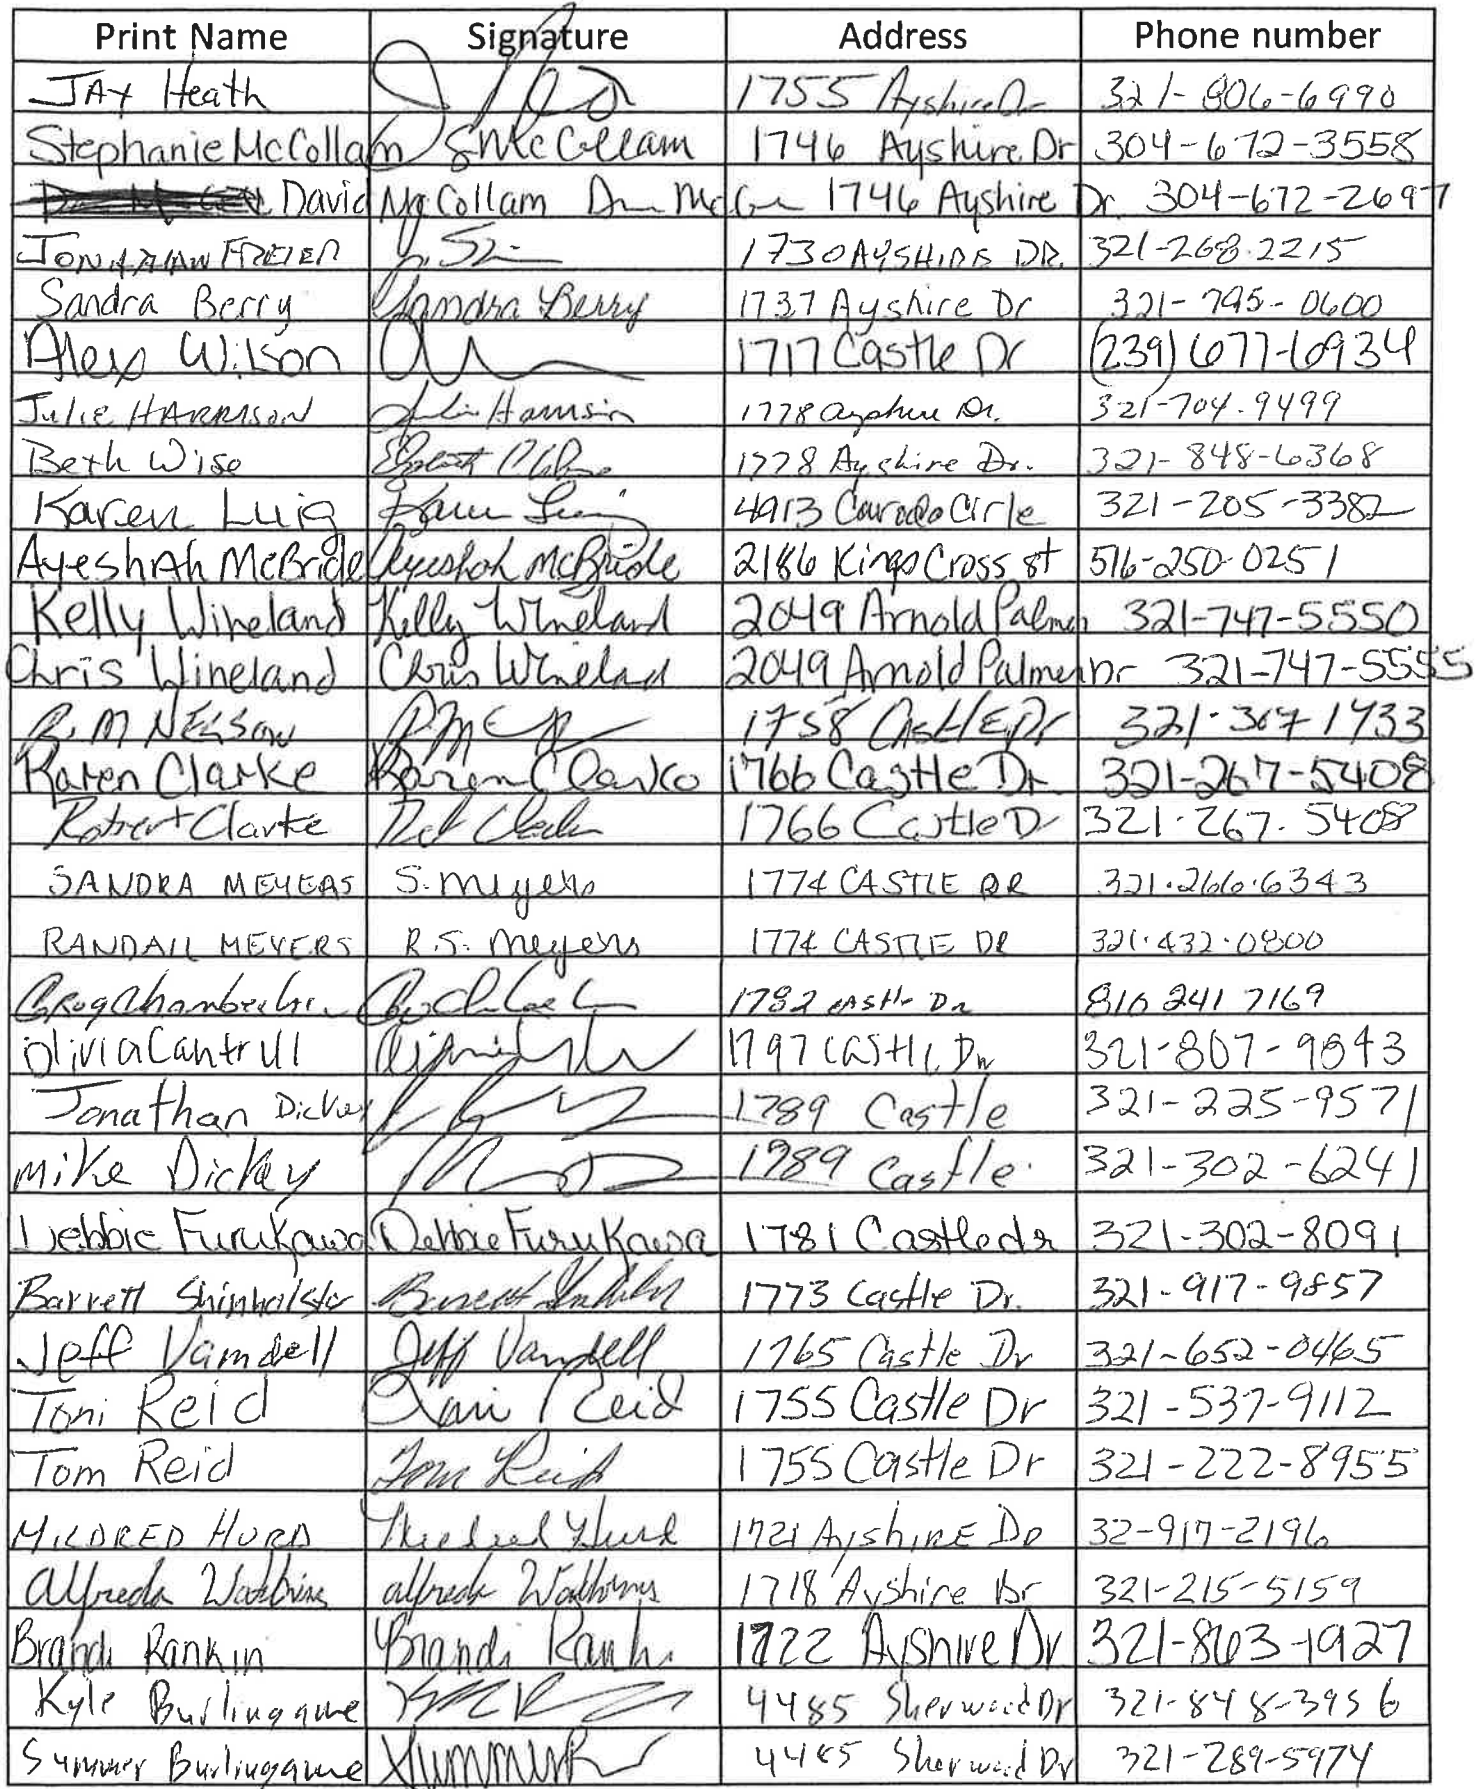 Print Name Signature Address Phone number
JAY Heath 1755 Ayshire Dr 321-806-6990
Stephanie McCollam SMcCollam 1746 Ayshire Dr 304-672-3558
David McCollam 1746 Ayshire Dr 304-672-2697
JONATHAN FREIER 1730 AYSHIRE DR. 321-268.2215
Sandra Berry Sandra Berry 1737 Ayshire Dr 321-795-0600
Alex Wilson 1717 Castle Dr (239) 677-6934
Julie HARRISON Julie Harrison 1778 Ayshire Dr. 321-704.9499
Beth Wise 1778 Ayshire Dr. 321-848-6368
Karen Luig Karen Luig 4913 Circle 321-205-3382
Ayeshah McBride Ayeshah McBride 2186 Kings Cross st 516-250-0251
Kelly Wineland Kelly Wineland 2049 Arnold Palmer 321-747-5550
Chris Wineland Chris Wineland 2049 Arnold Palmer Dr 321-747-5555
R.M NELSON 1758 CAstLE Dr 321-307-1733
Karen Clarke Karen Clarke 1766 Castle Dr. 321-267-5408
Robert Clarke 1766 Castle D 321.267.5408
SANDRA MEYERS S. Meyers 1774 CASTLE DR 321.266.6343
RANDALL MEYERS R.S. Meyers 1774 CASTLE DR 321.432.0800
Greg Chamberlain 1782 CAstle Dr 810 241 7169
Olivia Cantrull 1797 Castle Dr 321-807-9843
Jonathan Dickey 1789 Castle 321-225-9571
Mike Dickey 1789 Castle 321-302-6241
Debbie Furukawa Debbie Furukawa 1781 Castle dr 321-302-8091
Barrett Shinholster 1773 Castle Dr. 321-917-9857
Jeff Vandell Jeff Vandell 1765 Castle Dr 321-652-0465
Toni Reid Toni Reid 1755 Castle Dr 321-537-9112
Tom Reid Tom Reid 1755 Castle Dr 321-222-8955
MILDRED HURD Mildred Hurd 1721 AyshIRE DR 32-917-2196
Alfreda Watkins Alfreda Watkins 1718 Ayshire Dr 321-215-5159
Brandi Rankin Brandi Rankin 1722 Ayshire Dr 321-863-1927
Kyle Burlingame 4485 Sherwood Dr 321-848-3956
Summer Burlingame 4485 Sherwood Dr 321-289-5974